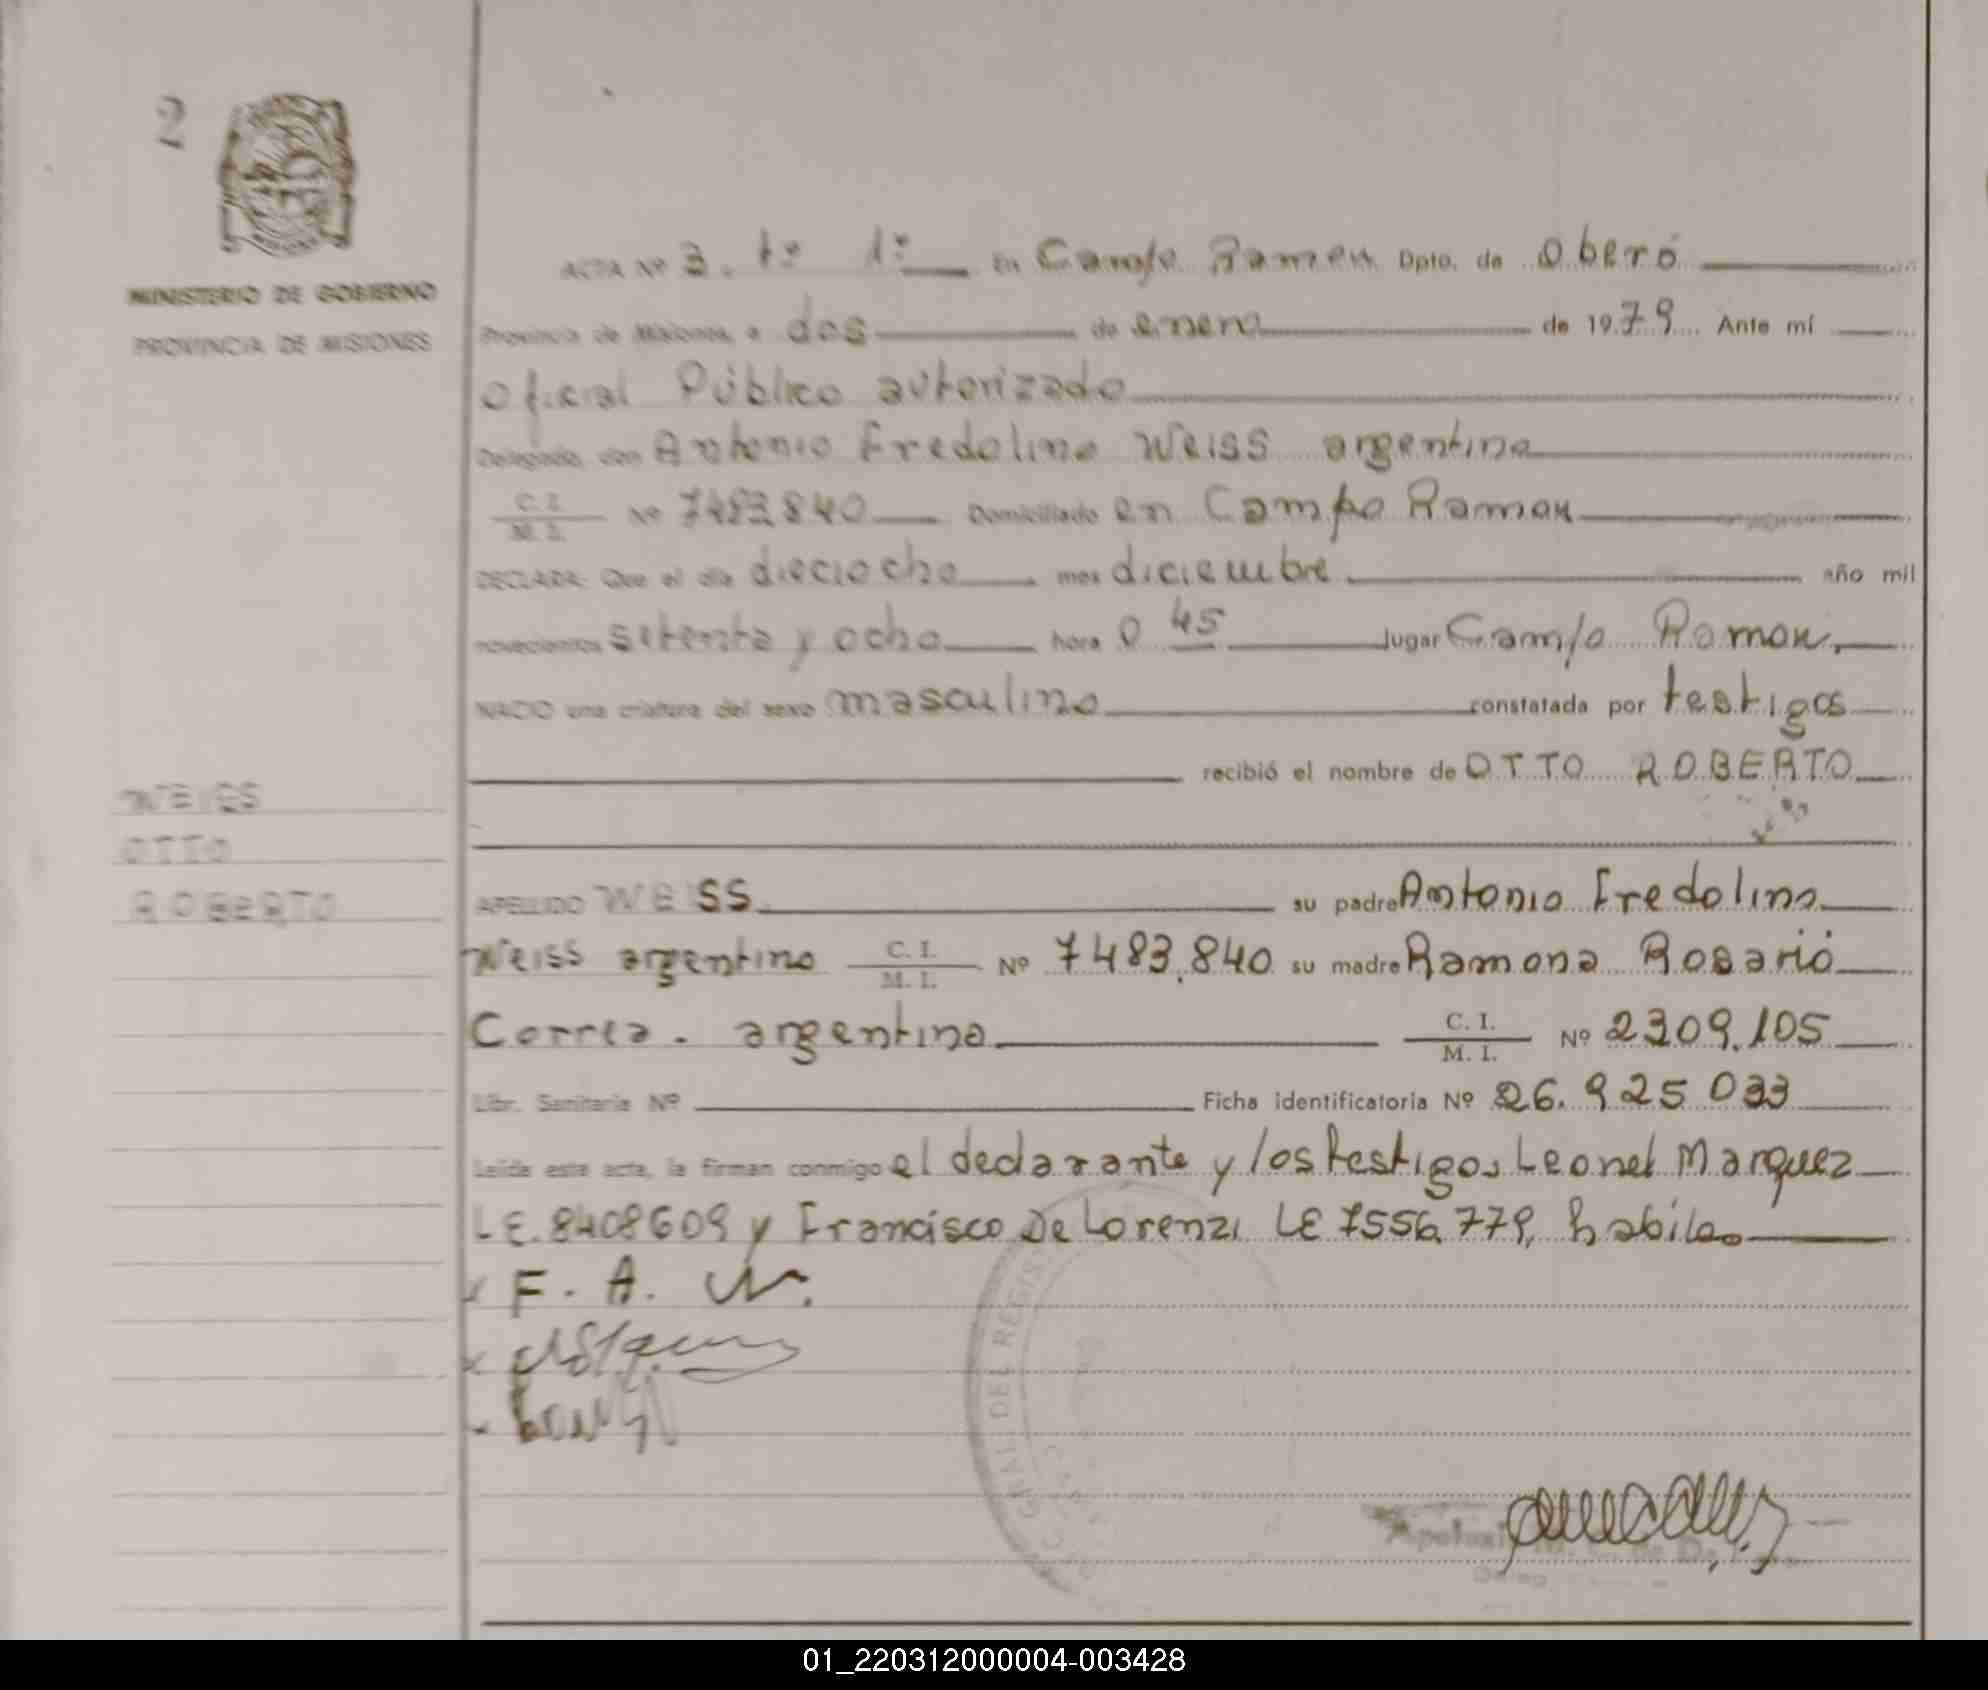 2
MINISTERIO DE GOBIERNO
PROVINCIA DE MISIONES
ACTA Nº 3. tº 1º en Campo Ramon Dpto. de Oberá
Provincia de Misiones, a dos de enero de 1979 Ante mí
Oficial Público autorizado
Delegado, don Antonio Fredolino Weiss argentino
C. I.
M. I.
Nº 7483.840 Domiciliado en Campo Ramon
DECLARA: Que el día dieciocho mes diciembre año mil
novecientos setenta y ocho hora 0 45 lugar Campo Ramon,
NACIO una criatura del sexo masculino constatada por testigos
recibió el nombre de OTTO ROBERTO
WEISS
OTTO
ROBERTO
APELLIDO WEISS su padre Antonio Fredolino
Weiss argentino C. I.
M. I. Nº 7483.840 su madre Ramona Rosario
Correa. argentina C. I.
M. I. Nº 2309.105
Libr. Sanitaria Nº Ficha identificatoria Nº 26.925 033
Leída esta acta, la firman conmigo el declarante y los testigos Leonel Marquez
LE.8408609 y Francisco De Lorenzi LE 7556.779, habiles
F. A. W.
DEL REGIS
01_220312000004-003428